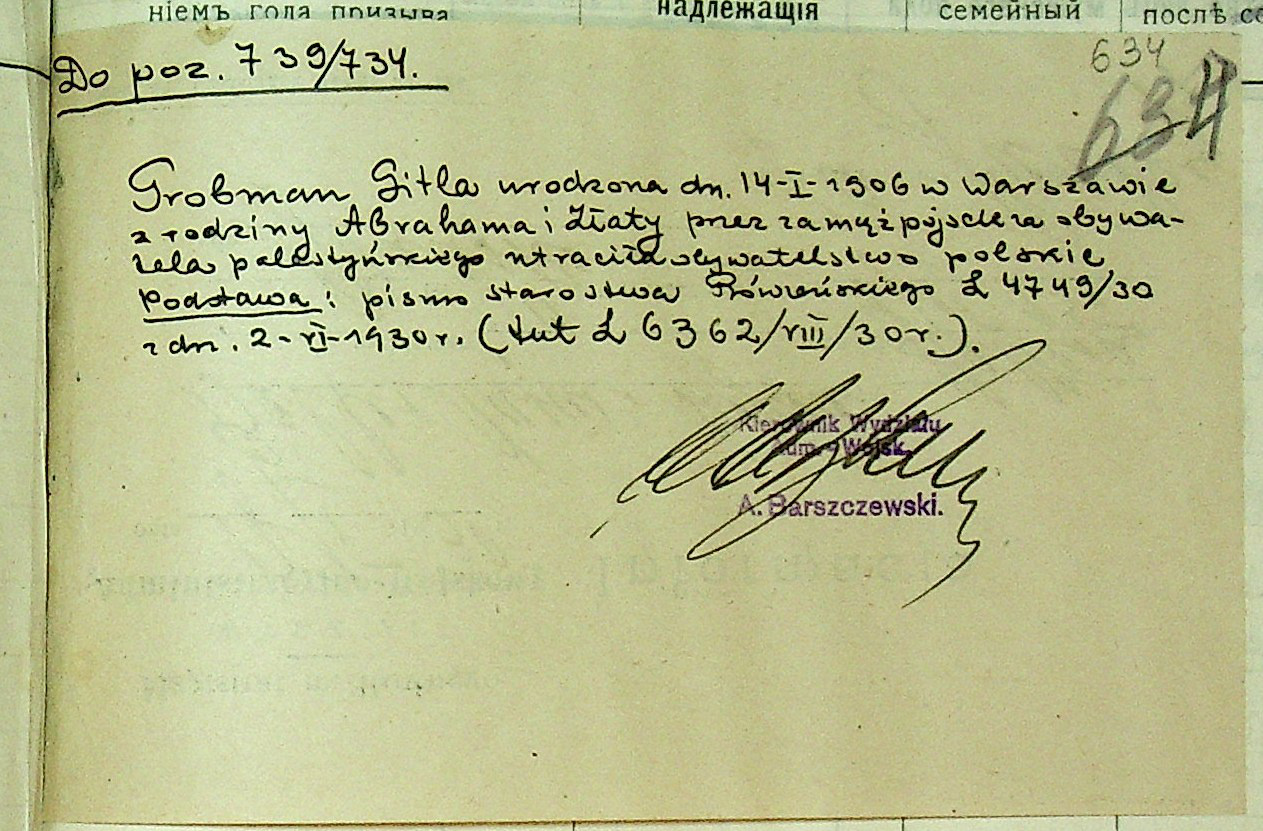 ніемъ года призыва
надлежащія
семейный
послѣ со
Do poz. 739/734.
634
634
Grobman Gitla urodzona dn. 14-I-1906 w Warszawie
z rodziny Abrahama i Złaty przez zamążpójście za obywa-
tela palestyńskiego utraciła obywatelstwo polskie
Podstawa: pismo starostwa Rówieńskiego L 4749/30
z dn. 2-VI-1930 r. (tut L 6362/VIII/30 r.).
Kierownik Wydziału
Adm. - Wojsk.
A. Barszczewski.